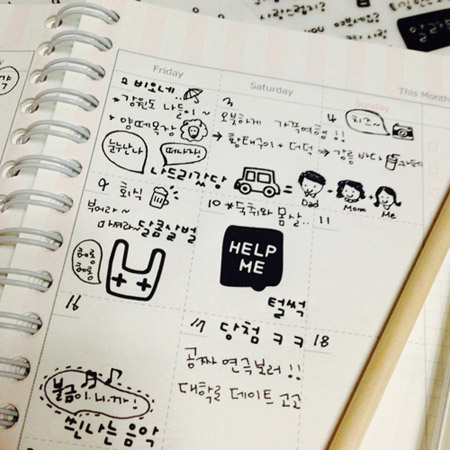 Friday
Saturday
Sunday
This Month
2 비오네..
* 강원도 나들이~
* 양떼목장
눈누난나
떠나자!
나드리갔당
3
오붓하게 가족여행!!
→ 황태구이 + 더덕 → 강릉 바다
카페
4
치즈~
= Dad Mom Me
9 회식
부어라~
마셔라~ 달콤살벌
10 * 숙취와 몸살..
HELP
ME
털썩
11
16
불금이니까!
씐나는 음악
17 당첨 ㅋㅋ
공짜 연극보러!!
대학로 데이트 고고
18